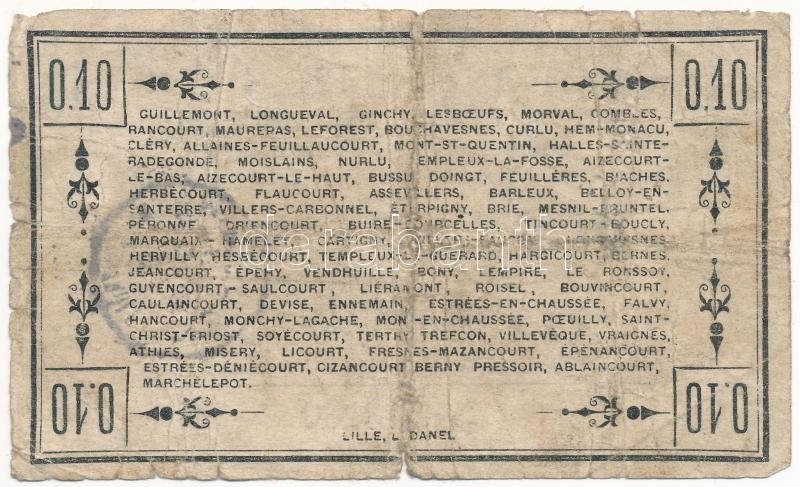 0.10 0.10
GUILLEMONT, LONGUEVAL, GINCHY, LESBŒUFS, MORVAL, COMBLES,
RANCOURT, MAUREPAS, LEFOREST, BOUCHAVESNES, CURLU, HEM-MONACU,
CLÉRY, ALLAINES-FEUILLAUCOURT, MONT-ST-QUENTIN, HALLES-SAINTE-
RADEGONDE, MOISLAINS, NURLU, TEMPLEUX-LA-FOSSE, AIZECOURT-
LE-BAS, AIZECOURT-LE-HAUT, BUSSU, DOINGT, FEUILLÈRES, BIACHES,
HERBÉCOURT, FLAUCOURT, ASSEVILLERS, BARLEUX, BELLOY-EN-
SANTERRE, VILLERS-CARBONNEL, ÉTERPIGNY, BRIE, MESNIL-BRUNTEL,
PÉRONNE, DRIENCOURT, BUIRE-COURCELLES, TINCOURT-BOUCLY,
MARQUAIX-HAMELET, CARTIGNY,
HERVILLY, HESBÉCOURT, TEMPLEUX-LA-GUÉRARD, HARGICOURT, BERNES,
JEANCOURT, ÉPEHY, VENDHUILE, BONY, LEMPIRE, LE RONSSOY,
GUYENCOURT-SAULCOURT, LIÉRAMONT, ROISEL, BOUVINCOURT,
CAULAINCOURT, DEVISE, ENNEMAIN, ESTRÉES-EN-CHAUSSÉE, FALVY,
HANCOURT, MONCHY-LAGACHE, MONS-EN-CHAUSSÉE, PŒUILLY, SAINT-
CHRIST-BRIOST, SOYÉCOURT, TERTRY, TREFCON, VILLEVÊQUE, VRAIGNES,
ATHIES, MISERY, LICOURT, FRESNES-MAZANCOURT, ÉPÉNANCOURT,
ESTRÉES-DÉNIÉCOURT, CIZANCOURT, BERNY PRESSOIR, ABLAINCOURT,
MARCHÉLEPOT.
0.10 0.10
LILLE, L. DANEL
darabanth